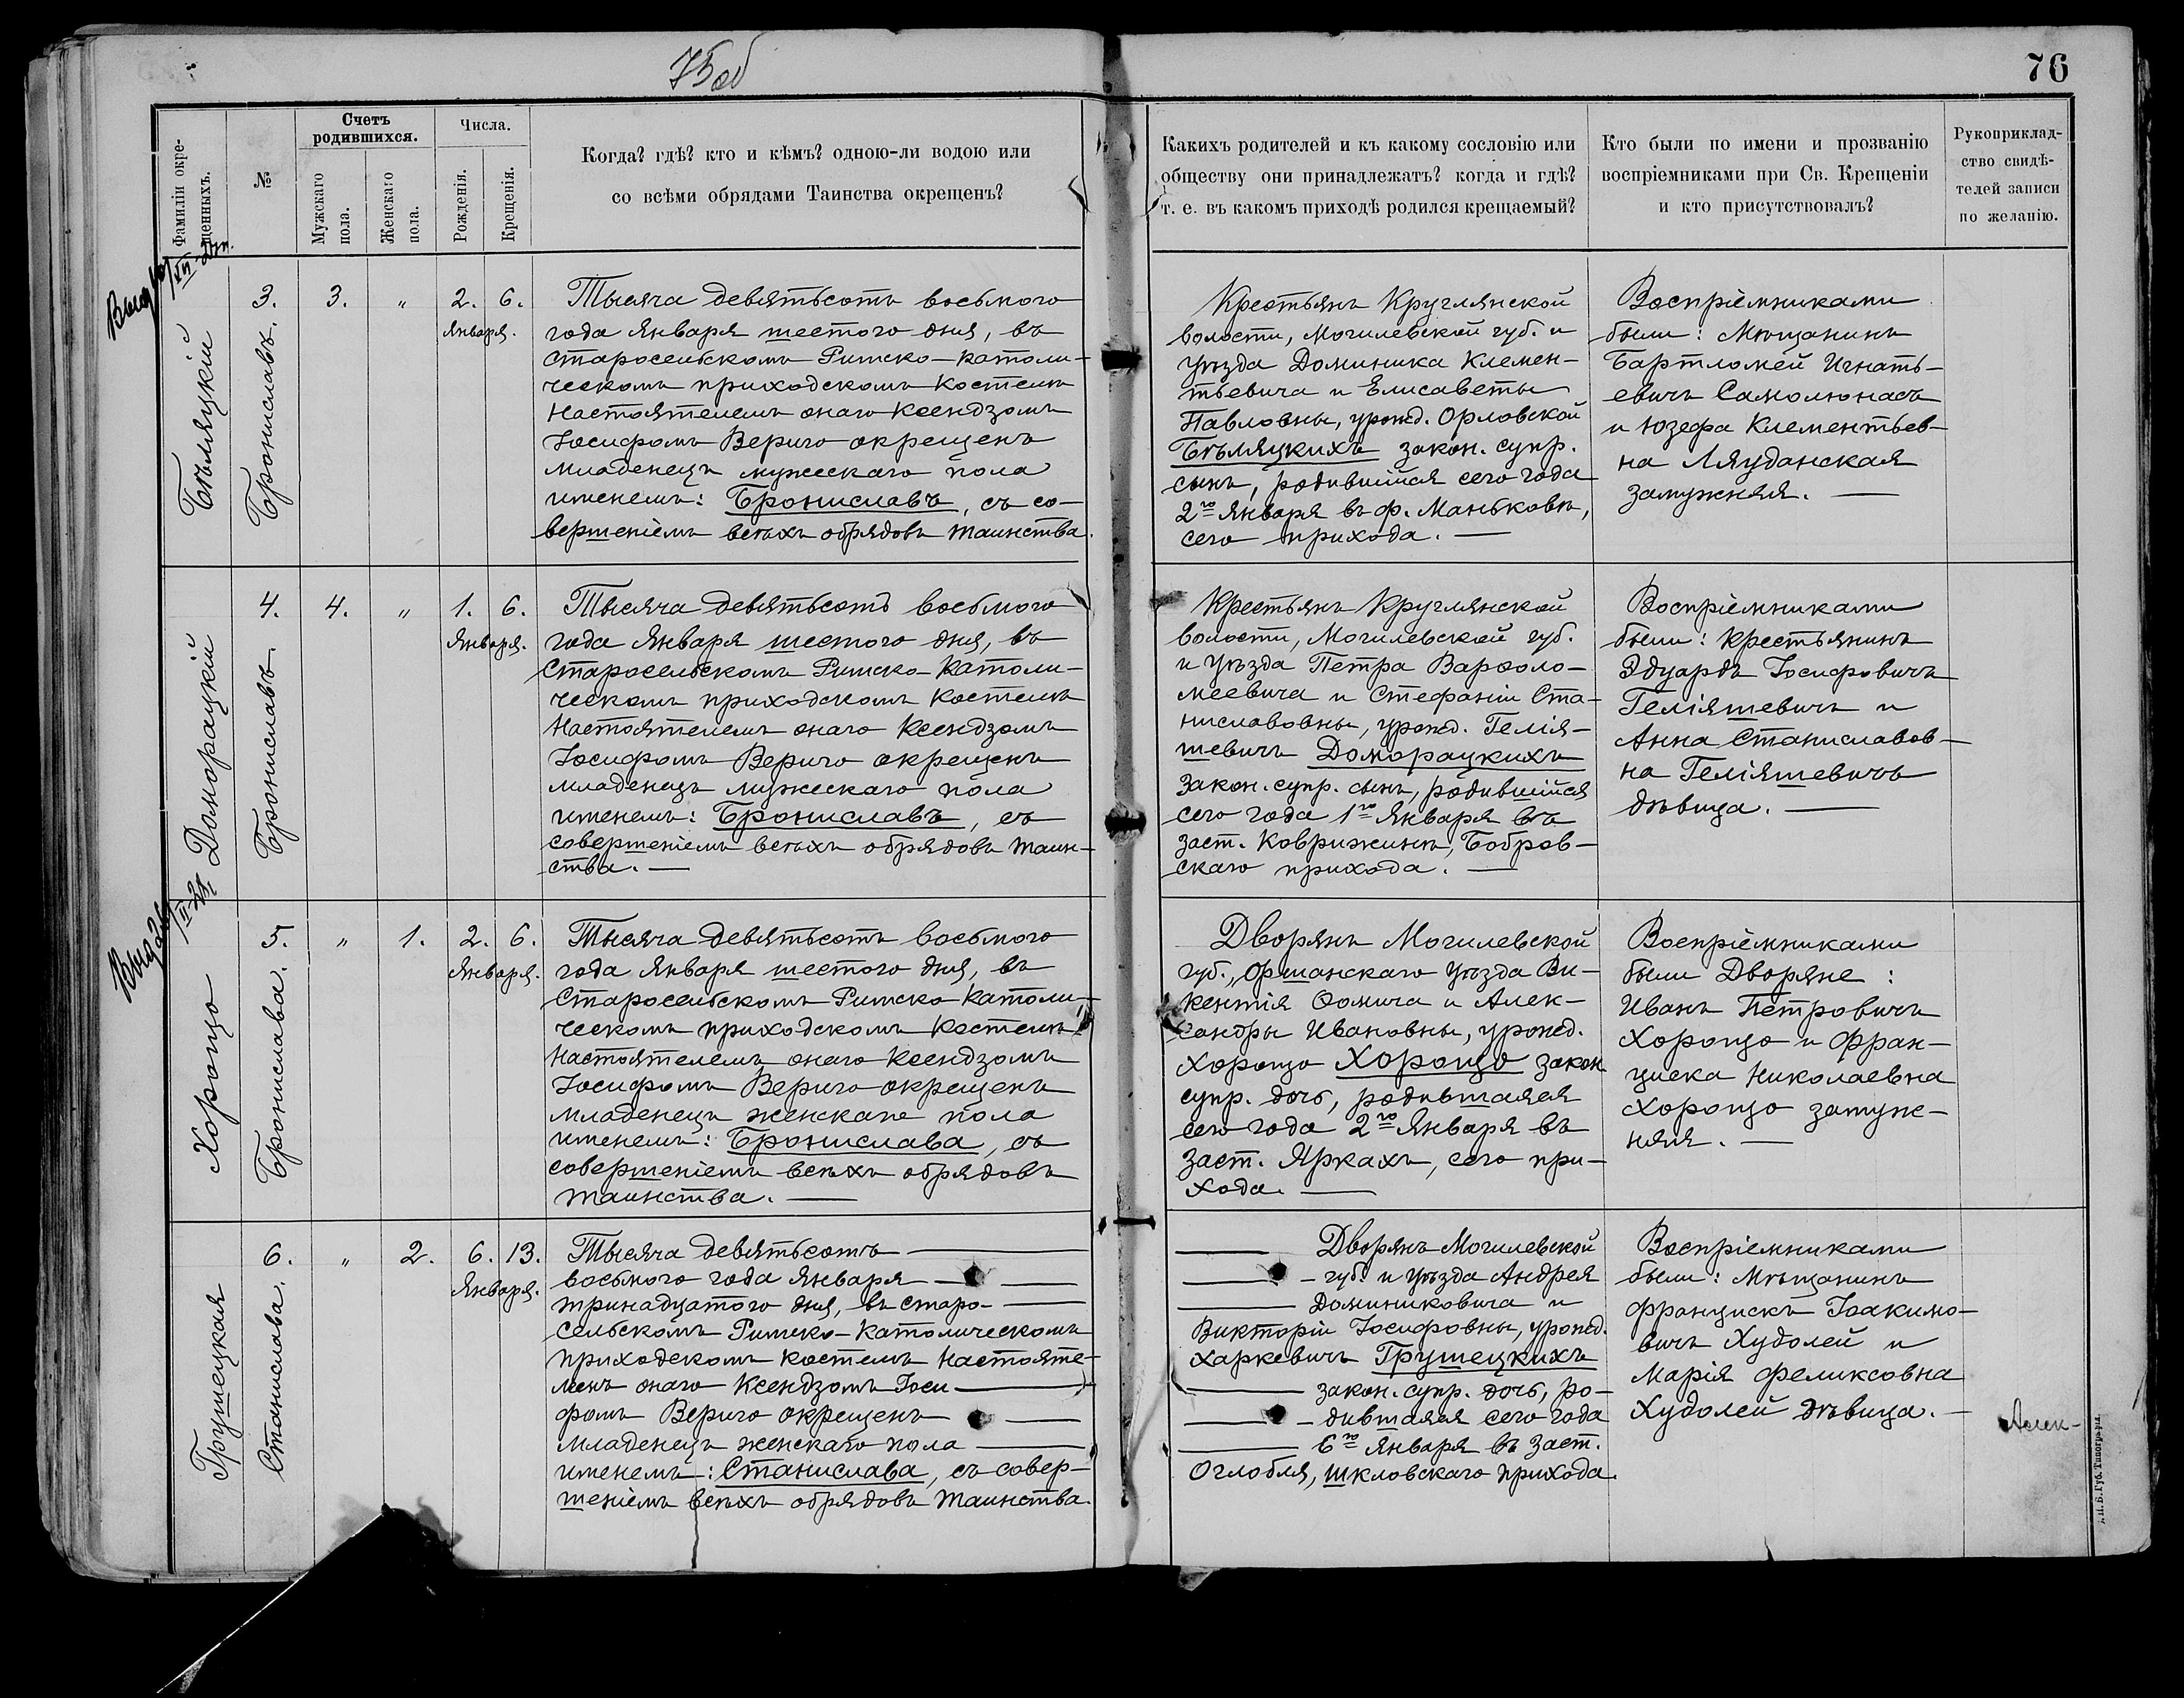 75об
76
Фамиліи окре-
щенныхъ.
№
Счетъ
родившихся.
Мужскаго
пола.
Женскаго
пола.
Числа.
Рожденія.
Крещенія.
Когда? гдѣ? кто и кѣмъ? одною-ли водою или
со всѣми обрядами Таинства окрещенъ?
Какихъ родителей и къ какому сословію или
обществу они принадлежатъ? когда и гдѣ?
т. е. въ какомъ приходѣ родился крещаемый?
Кто были по имени и прозванію
воспріемниками при Св. Крещеніи
и кто присутствовалъ?
Рукоприклад-
ство свидѣ-
телей записи
по желанію.
Бѣляцкій
Брониславъ.
3.
3.
"
2. 6.
Января.
Тысяча девятьсотъ восьмого
года Января шестого дня, въ
Старосельскомъ Римско-Католи-
ческомъ приходскомъ костелѣ
Настоятелемъ онаго Ксендзомъ
Іосифомъ Вериго окрещенъ
младенецъ мужескаго пола
именемъ: Брониславъ, съ со-
вершеніемъ всѣхъ обрядовъ таинства.
Крестьянъ Круглянской
волости, Могилевской губ. и
уѣзда Доминика Клемен-
тьевича и Елисаветы
Павловны, урожд. Орловской
Бѣляцкихъ закон. супр.
сынъ, родившійся сего года
2го Января въ ф. Маньковѣ,
сего прихода. —
Воспріемниками
были: Мѣщанинъ
Бартломей Игнать-
евичъ Самолюнасъ
и Юзефа Клементьев-
на Ляуданская
замужняя. —
Доморацкій
Брониславъ.
4.
4.
"
1. 6.
Января.
Тысяча девятьсотъ восьмого
года Января шестого дня, въ
Старосельскомъ Римско-Католи-
ческомъ приходскомъ костелѣ
Настоятелемъ онаго Ксендзомъ
Іосифомъ Вериго окрещенъ
младенецъ мужескаго пола
именемъ: Брониславъ, съ
совершеніемъ всѣхъ обрядовъ таин-
ства. —
Крестьянъ Круглянской
волости, Могилевской губ.
и уѣзда Петра Варѳоло-
меевича и Стефаніи Ста-
ниславовны, урожд. Гелія-
шевичъ Доморацкихъ
закон. супр. сынъ, родившійся
сего года 1го Января въ
заст. Коврижинѣ, Бобров-
скаго прихода. —
Воспріемниками
были: крестьянинъ
Эдуардъ Іосифовичъ
Геліяшевичъ и
Анна Станиславов-
на Геліяшевичъ
дѣвица. —
Хорощо
Бронислава.
5.
"
1.
2. 6.
Января.
Тысяча девятьсотъ восьмого
года Января шестого дня, въ
Старосельскомъ Римско-Католи-
ческомъ приходскомъ костелѣ
Настоятелемъ онаго Ксендзомъ
Іосифомъ Вериго окрещенъ
младенецъ женскаго пола
именемъ: Бронислава, съ
совершеніемъ всѣхъ обрядовъ
таинства. —
Дворянъ Могилевской
губ., Оршанскаго уѣзда Ви-
кентія Ѳомича и Алек-
сандры Ивановны, урожд.
Хорощо Хорощо закон.
супр. дочь, родившаяся
сего года 2го Января въ
заст. Яркахъ, сего при-
хода. —
Воспріемниками
были Дворяне:
Иванъ Петровичъ
Хорощо и Фран-
циска Николаевна
Хорощо замуж-
няя. —
Грушецкая
Станислава.
6.
"
2.
6. 13.
Января.
Тысяча девятьсотъ —
восьмого года Января —
тринадцатого дня, въ Старо-
сельскомъ Римско-Католическомъ
приходскомъ костелѣ Настояте-
лемъ онаго Ксендзомъ Іоси-
фомъ Вериго окрещенъ —
младенецъ женскаго пола —
именемъ: Станислава, съ совер-
шеніемъ всѣхъ обрядовъ таинства.
Дворянъ Могилевской
губ. и уѣзда Андрея
Доминиковича и
Викторіи Іосифовны, урожд.
Харкевичъ Грушецкихъ
закон. супр. дочь, ро-
дившаяся сего года
6го Января въ заст.
Оглобля, Шкловскаго прихода.
Воспріемниками
были: Мѣщанинъ
Францискъ Іоакимо-
вичъ Худолей и
Марія Феликсовна
Худолей дѣвица. —